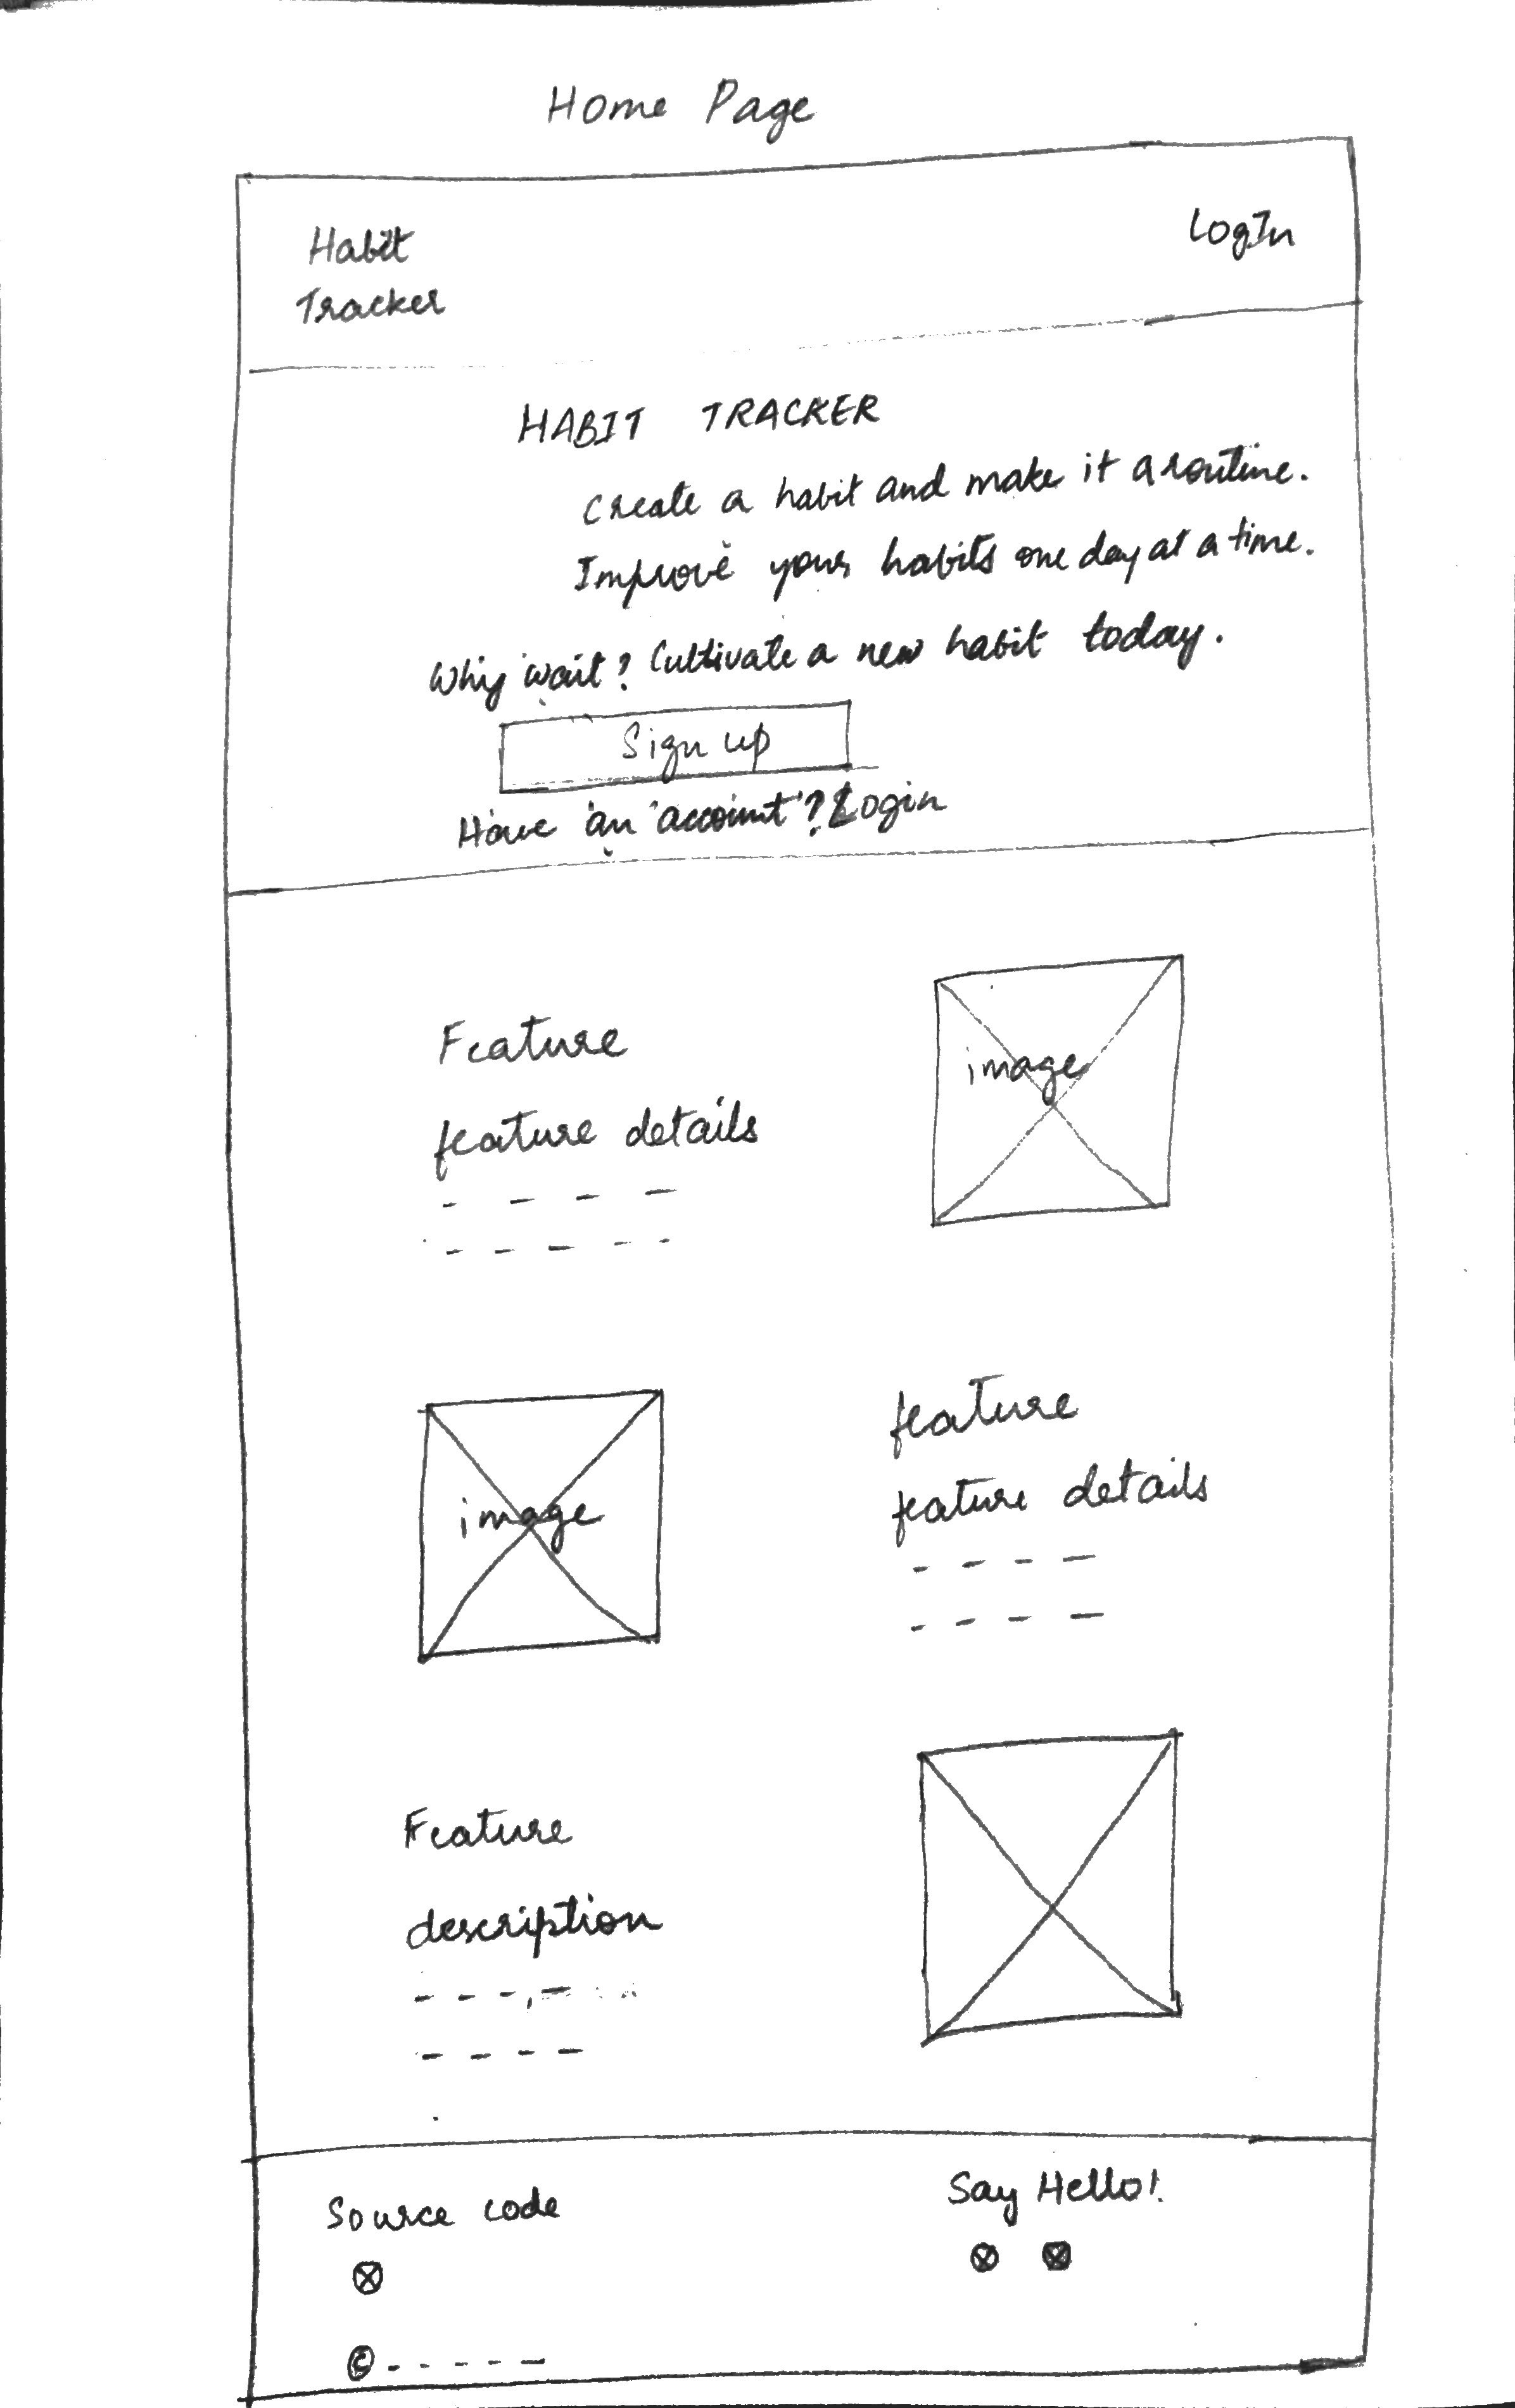 Home Page
Habit
Tracker
LogIn
HABIT TRACKER
Create a habit and make it a routine.
Improve your habits one day at a time.
Why wait? Cultivate a new habit today.
Sign up
Have an account? Login
Feature
feature details
image
image
feature
feature details
Feature
description
Source code
Say Hello!
©